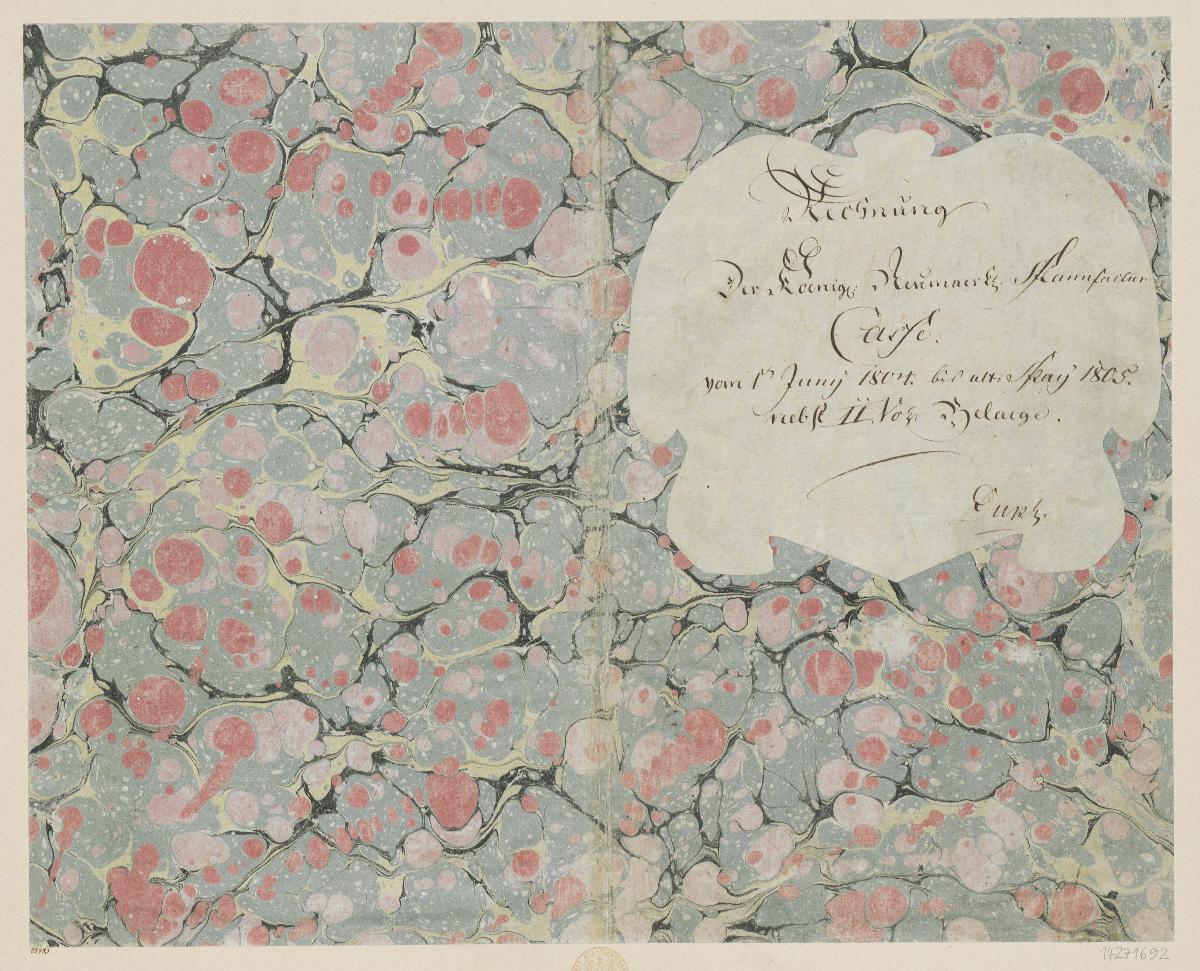 Rechnung
Der Koenigl. Neumaerk. Manufactur
Casse.
vom 1ᵗ Juny 1804. bis ult. May 1805.
nebst II. Vol. Belaege.
14271692